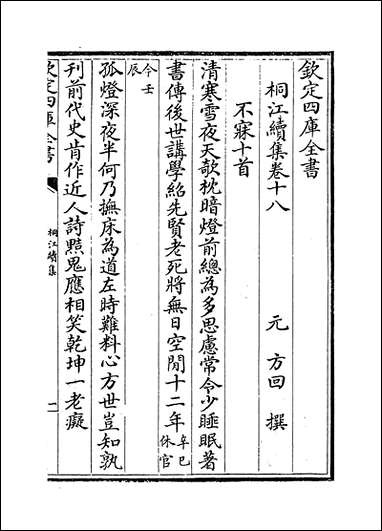 欽定四庫全書
桐江續集卷十八
元 方回 撰
不寐十首
清寒雪夜天欹枕暗燈前總為多思慮常令少睡眠著
書傳後世講學紹先賢老死將無日空閒十二年辛巳休官
今壬辰
孤燈深夜半何乃撫床為道左時難料心方世豈知孰
刊前代史肯作近人詩點鬼應相笑乾坤一老癡
欽定四庫全書
桐江續集
一